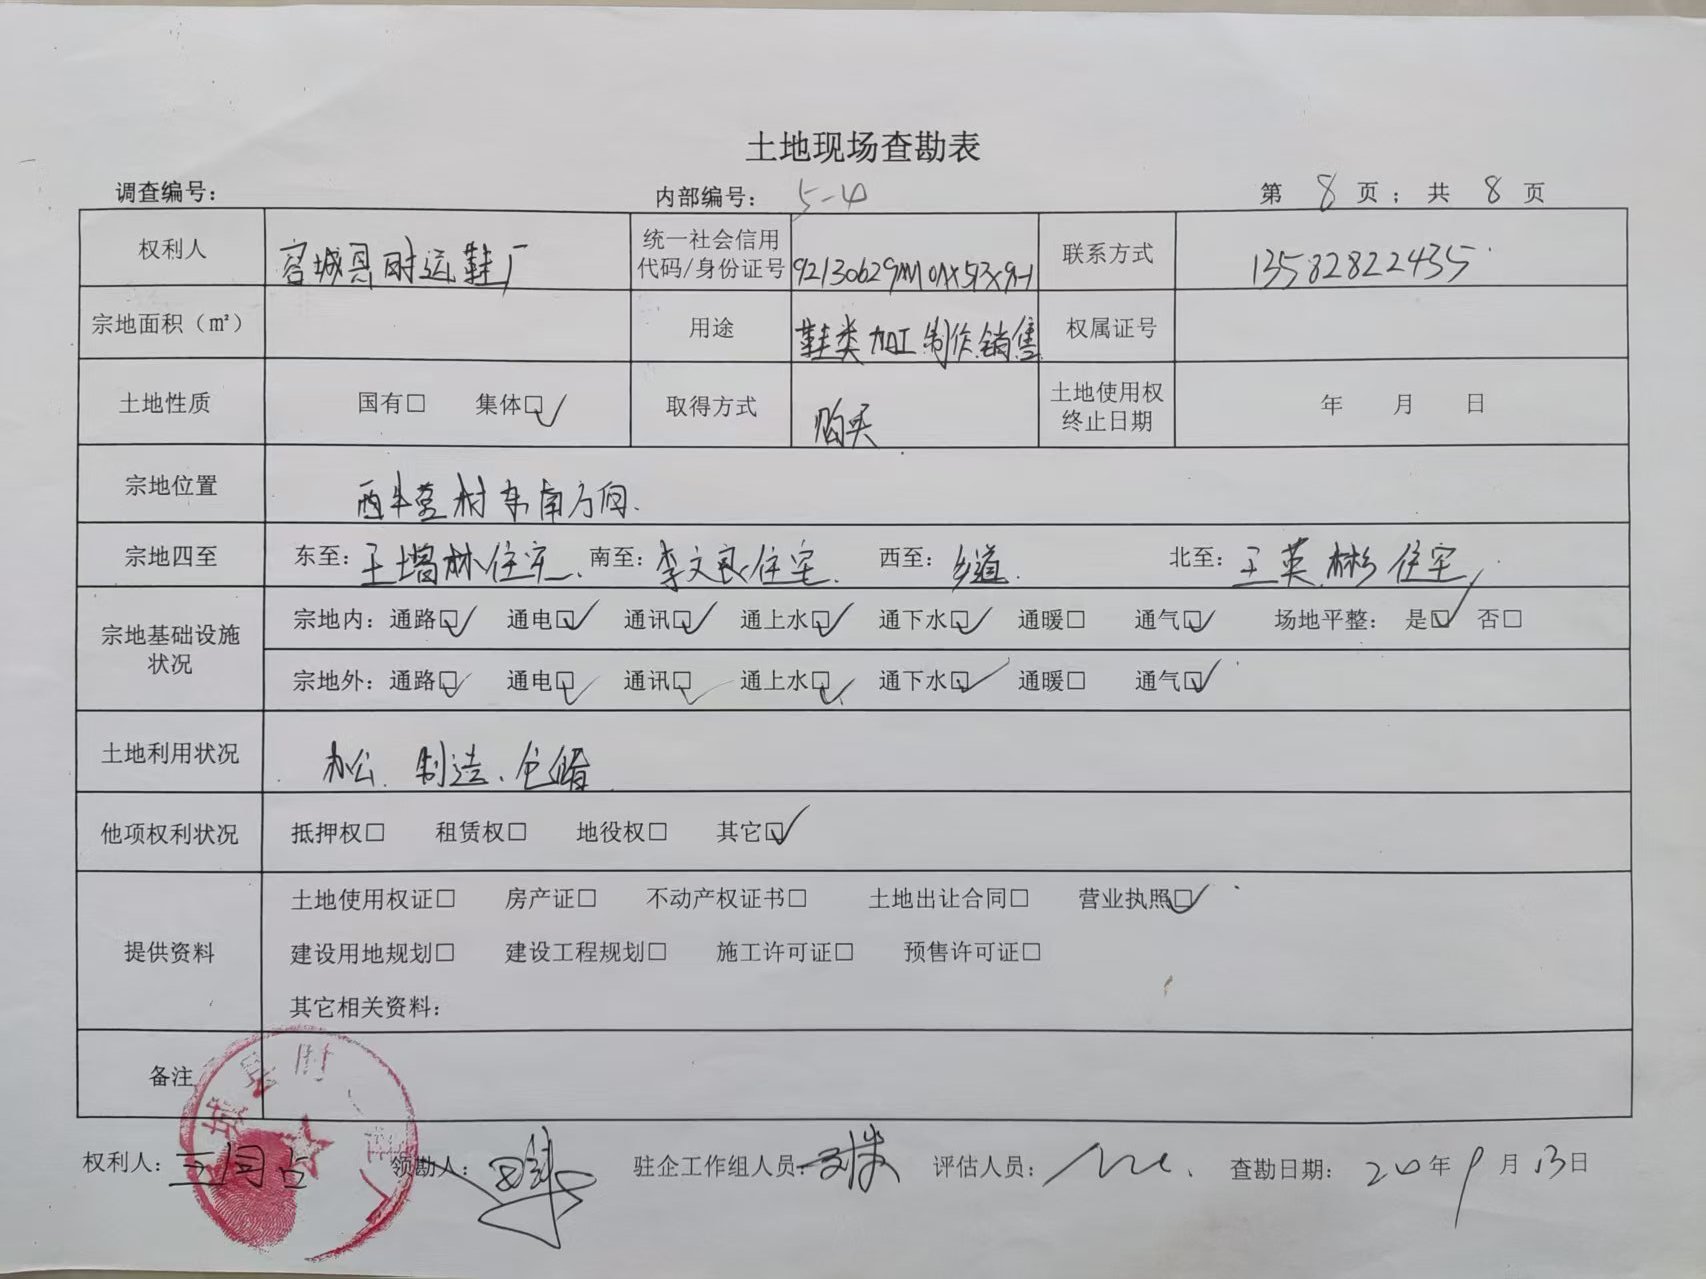 土地现场查勘表
调查编号： 内部编号： 5-4 第 8 页； 共 8 页
权利人 容城县时运鞋厂 统一社会信用代码/身份证号 联系方式 13582822435
宗地面积（㎡） 用途 鞋类加工制作销售 权属证号
土地性质 国有□ 集体☑ 取得方式 购买 土地使用权终止日期 年 月 日
宗地位置 西牛营村东南方向.
宗地四至 东至：王增林住宅. 南至：李文良住宅. 西至：乡道. 北至：王英彬住宅
宗地基础设施状况 宗地内：通路☑ 通电☑ 通讯☑ 通上水☑ 通下水☑ 通暖□ 通气☑ 场地平整： 是☑ 否□
宗地外：通路☑ 通电☑ 通讯☑ 通上水☑ 通下水☑ 通暖□ 通气☑
土地利用状况 办公、制造、仓储
他项权利状况 抵押权□ 租赁权□ 地役权□ 其它☑
提供资料 土地使用权证□ 房产证□ 不动产权证书□ 土地出让合同□ 营业执照☑
建设用地规划□ 建设工程规划□ 施工许可证□ 预售许可证□
其它相关资料：
备注
权利人： 领勘人： 驻企工作组人员： 评估人员： 查勘日期： 20年9月13日